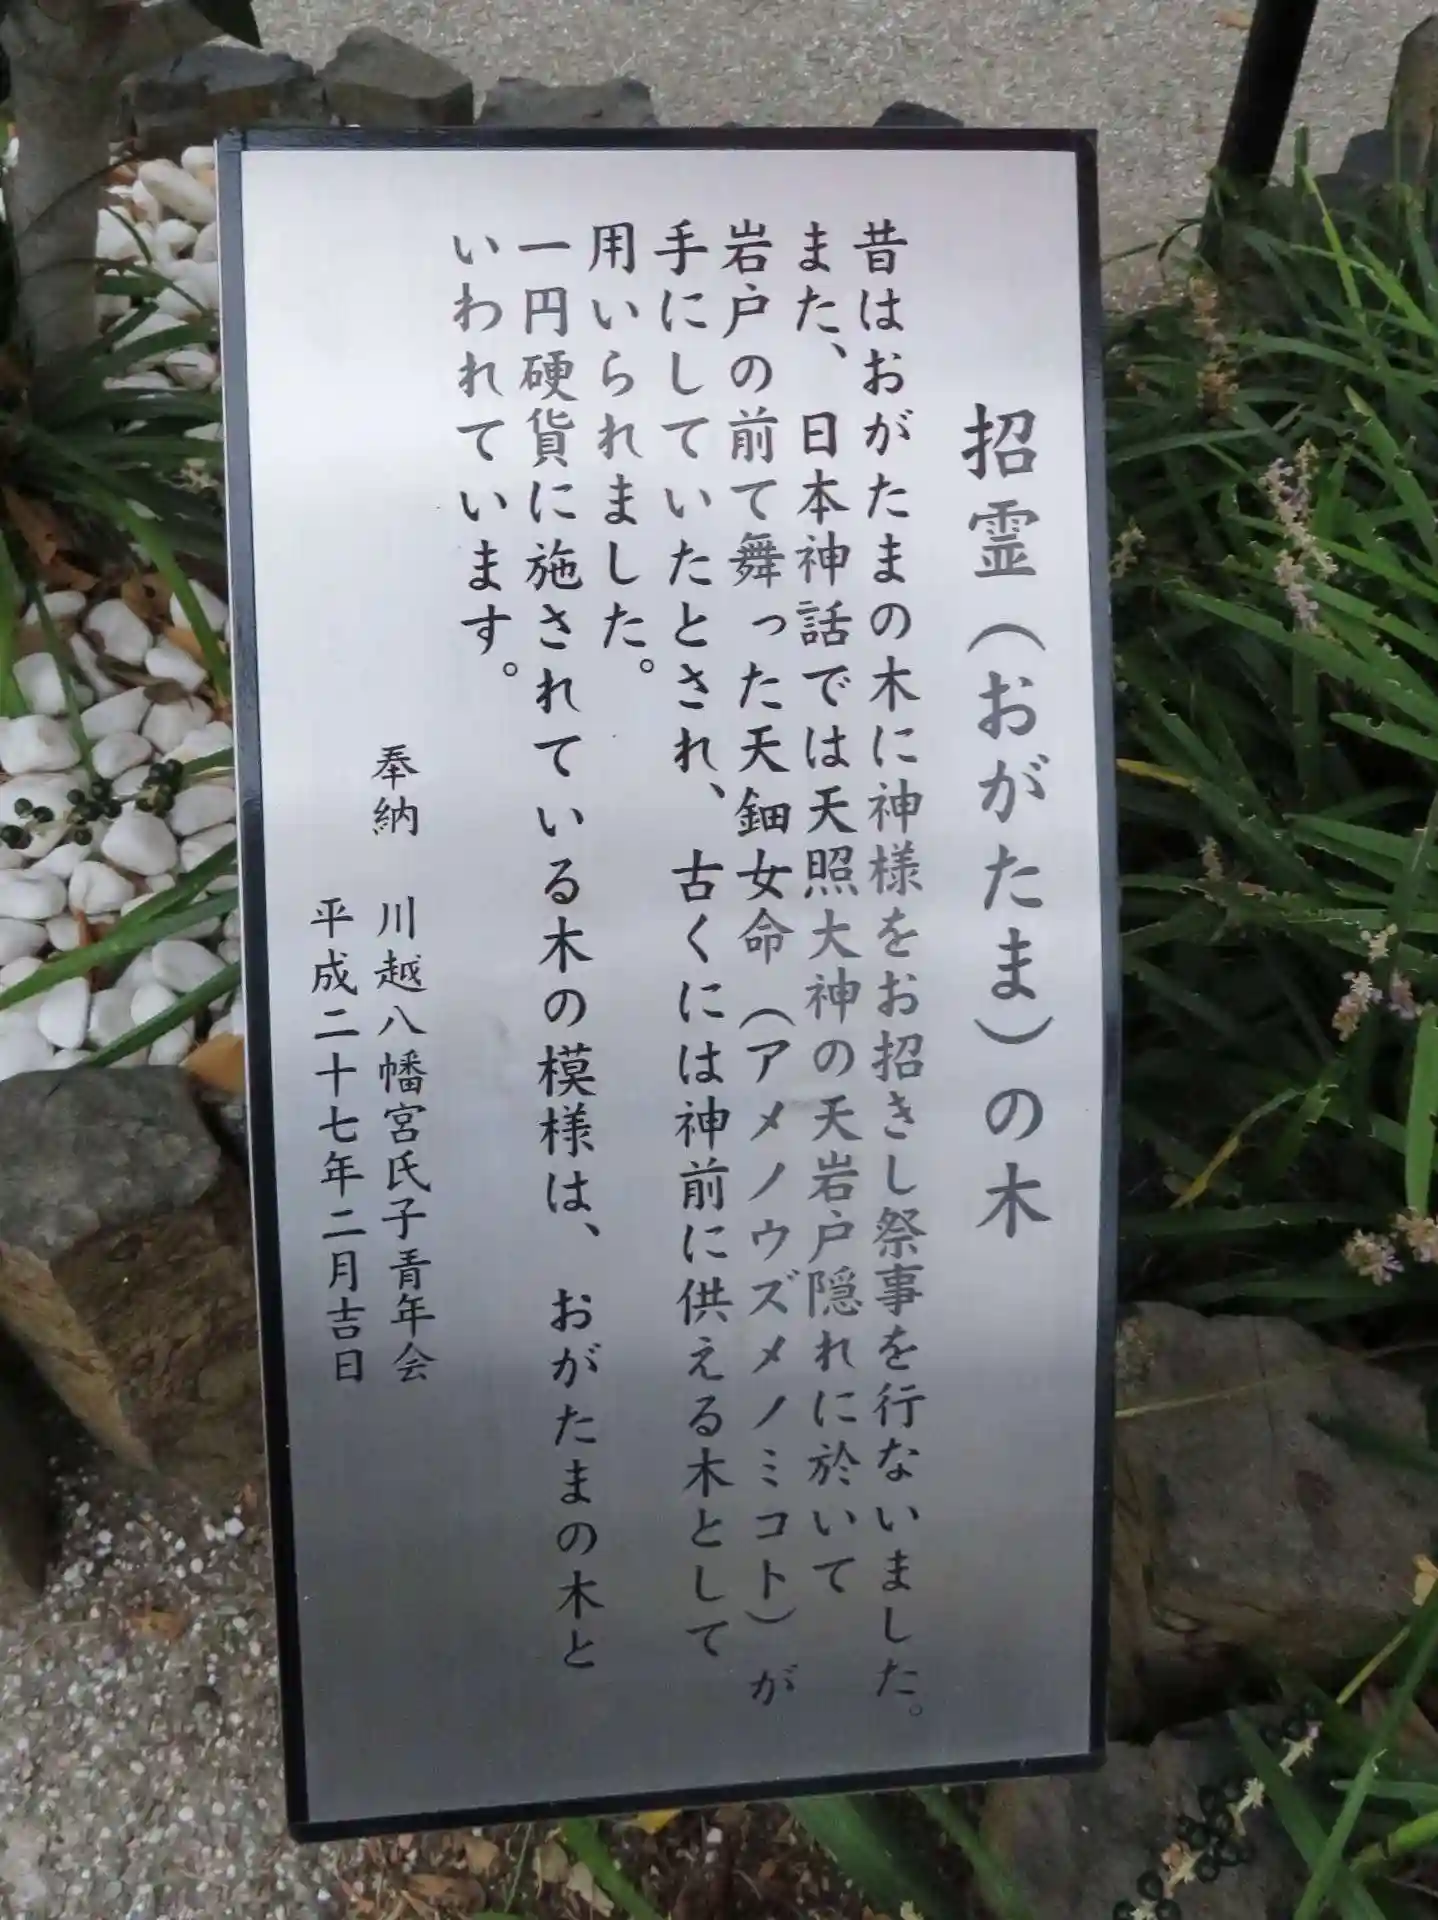 招霊（おがたま）の木
昔はおがたまの木に神様をお招きし祭事を行ないました。
また、日本神話では天照大神の天岩戸隠れに於いて
岩戸の前て舞った天鈿女命（アメノウズメノミコト）が
手にしていたとされ、古くには神前に供える木として
用いられました。
一円硬貨に施されている木の模様は、おがたまの木と
いわれています。
奉納　川越八幡宮氏子青年会
平成二十七年二月吉日